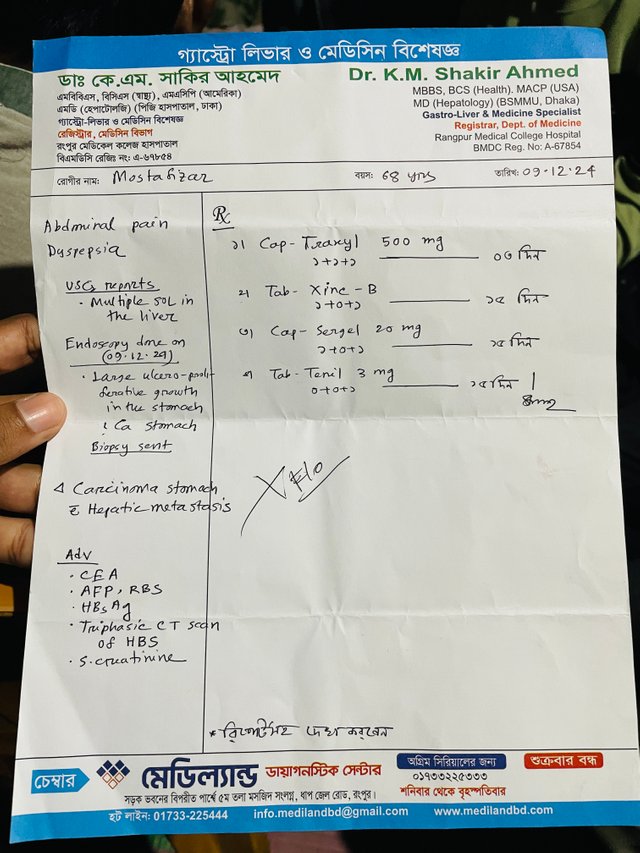 গ্যাস্ট্রো লিভার ও মেডিসিন বিশেষজ্ঞ
ডাঃ কে.এম. সাকির আহমেদ
এমবিবিএস, বিসিএস (স্বাস্থ্য), এমএসিপি (আমেরিকা)
এমডি (হেপাটোলজি) (পিজি হাসপাতাল, ঢাকা)
গ্যাস্ট্রো-লিভার ও মেডিসিন বিশেষজ্ঞ
রেজিস্ট্রার, মেডিসিন বিভাগ
রংপুর মেডিকেল কলেজ হাসপাতাল
বিএমডিসি রেজিঃ নং: এ-৬৭৮৫৪
Dr. K.M. Shakir Ahmed
MBBS, BCS (Health). MACP (USA)
MD (Hepatology) (BSMMU, Dhaka)
Gastro-Liver & Medicine Specialist
Registrar, Dept. of Medicine
Rangpur Medical College Hospital
BMDC Reg. No: A-67854
রোগীর নাম: Mostafizar বয়স: 68 yrs তারিখ: 09.12.24
Abdminal pain
Dyspepsia
USG reports
• Multiple SOL in
the liver
Endoscopy done on
(09.12.24)
• Large ulcero-proli-
ferative growth
in the stomach
? Ca stomach
Biopsy sent
Δ Carcinoma stomach
c̄ Hepatic metastasis
Adv
• CEA
• AFP, RBS
• HBsAg
• Triphasic CT scan
of HBS
• S. creatinine
Rx
১। Cap- Traxyl 500 mg
১+১+১ ০৩ দিন
২। Tab- Xinc - B
১+০+১ ১৫ দিন
৩। Cap- Sergel 20 mg
১+০+১ ১৫ দিন
৪। Tab- Tenil 3 mg
০+০+১ ১৫ দিন
* রিপোর্টসহ দেখা করবেন
চেম্বার
মেডিল্যান্ড ডায়াগনস্টিক সেন্টার
সড়ক ভবনের বিপরীত পার্শ্বে ৫ম তলা মসজিদ সংলগ্ন, ধাপ জেল রোড, রংপুর।
অগ্রিম সিরিয়ালের জন্য
০১৭৩৩২২৫৩৩৩
শুক্রবার বন্ধ
শনিবার থেকে বৃহস্পতিবার
হট লাইন: 01733-225444 info.mediland@gmail.com www.medilandbd.com